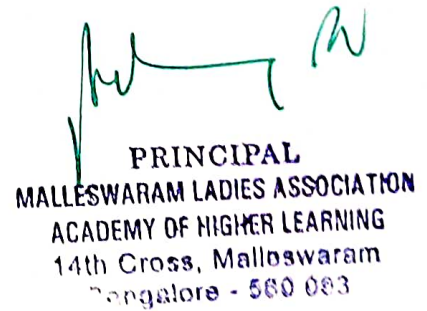 PRINCIPAL
MALLESWARAM LADIES ASSOCIATION
ACADEMY OF HIGHER LEARNING
14th Cross, Malleswaram
Bangalore - 560 003